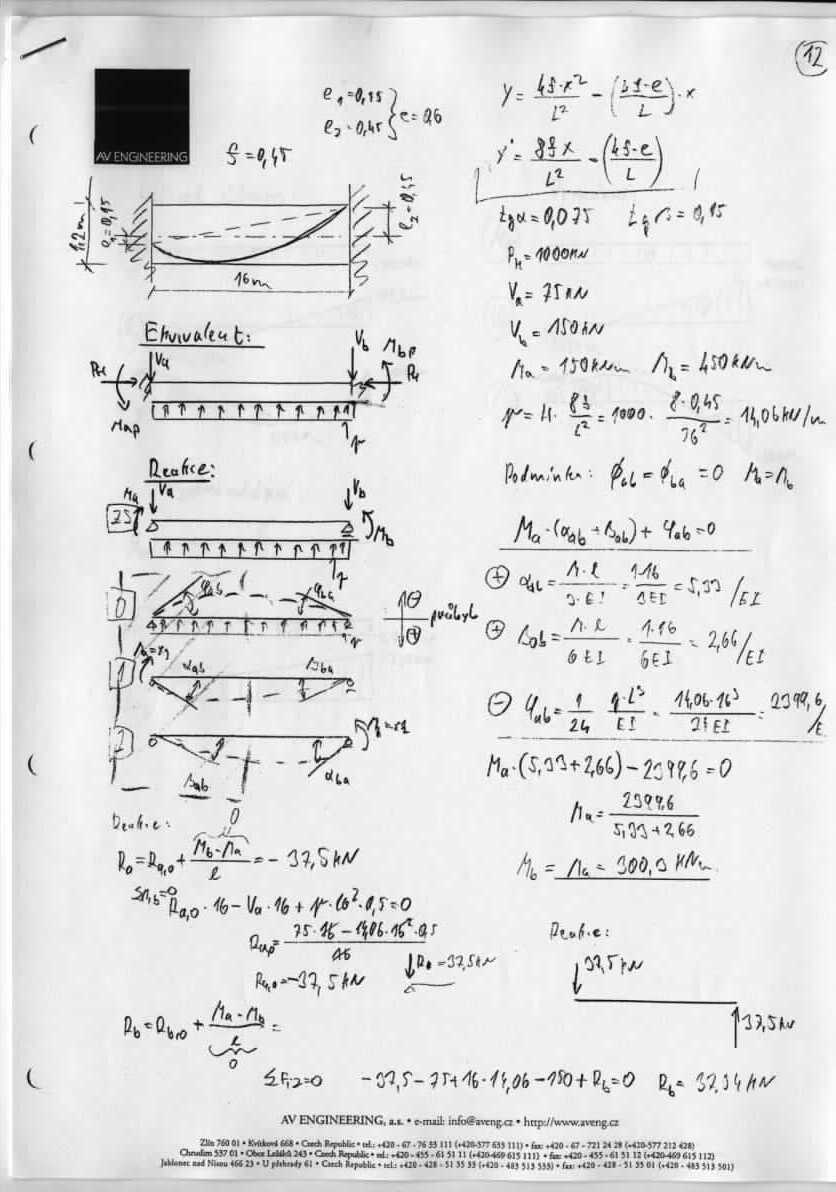 12
AV ENGINEERING
e₁=0,15
e₂=0,45
e=0,6
f=0,45
1,2m
e₁=0,15
e₂=0,45
16m
y = 4f·x²/L² - (4f-e/L)·x
y' = 8fx/L² - (4f-e/L)
tgα=0,075 tgβ=0,15
P_H=1000kN
V_a=75kN
V_b=150kN
M_a=150kNm M_b=450kNm
p=H·8f/L²=1000·8·0,45/16²=14,06kN/m
Ekvivalent:
V_a V_b M_bp
P_H P_H
M_ap p
Reakce:
M_a V_a V_b
25 M_b
p
Podmínka: ϕ_ab=ϕ_ba=0 M_a=M_b
M_a·(α_ab+β_ab)+φ_ab=0
0 φ_ab φ_ba ⊖ průhyb
p ⊕
1 α_ab β_ba
2 β_ab α_ba
⊕ α_ab=1·l/3·EI=1·16/3EI=5,33/EI
⊕ β_ab=1·l/6EI=1·16/6EI=2,66/EI
⊖ φ_ab=1/24 q·L³/EI=14,06·16³/24EI=2399,6/E
M_a·(5,33+2,66)-2399,6=0
M_a=2399,6/5,33+2,66
M_b=M_a=300,3kNm
Reakce:
R_a=R_a,0+M_b-M_a/l=-37,5kN
0
ΣM_b=0
R_a,0·16-V_a·16+p·16²·0,5=0
R_a,0=75·16-14,06·16²·0,5/16
R_a,0=-37,5kN
R_a=37,5kN
Reakce:
37,5kN
37,5kN
R_b=R_b,0+M_a-M_b/l=
0
ΣF_iz=0 -37,5-75+16·14,06-150+R_b=0 R_b=37,54kN
AV ENGINEERING, a.s. • e-mail: info@aveng.cz • http://www.aveng.cz
Zlín 760 01 • Kvítková 668 • Czech Republic • tel.: +420 - 67 - 76 33 111 (+420-577 633 111) • fax: +420 - 67 - 721 24 28 (+420-577 212 428)
Chrudim 537 01 • Obce Ležáků 243 • Czech Republic • tel.: +420 - 455 - 61 51 11 (+420-469 615 111) • fax: +420 - 455 - 61 51 12 (+420-469 615 112)
Jablonec nad Nisou 466 23 • U přehrady 61 • Czech Republic • tel.: +420 - 428 - 51 35 33 (+420 - 483 513 533) • fax: +420 - 428 - 51 35 01 (+420 - 483 513 501)